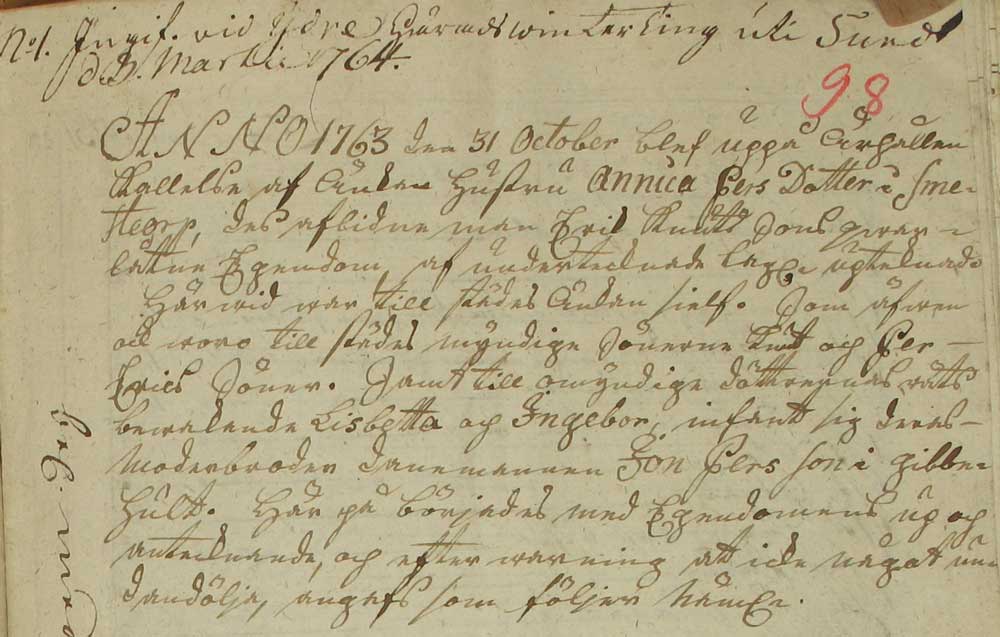 No 1. Ingif. vid Ydre Härads winterting uti Sund
d 3. Martii 1764.
98
ANNO 1763 den 31 October blef uppå
Kallelse af Änkan Hustru Annica Pers Dotter i Sme-
storp, des aflidne man Eric Knuts Sons qvar-
låtne Egendom af undertecknade upteknad.
Här wid war till städes Änkan sielf. Som äfwen
ock woro till städes myndige Sönerne Knut och Per
Erics Söner. Samt till omyndige döttrarnas rätts
bewakande Lisbetta och Ingebor, infant sig deras
Moderbroder danemannen Jon Pers son i Gibbe-
hult. Här på börjades med Egendomens up och
antecknande, och efter warning att icke något un-
dandölja, angafs som följer Näml.